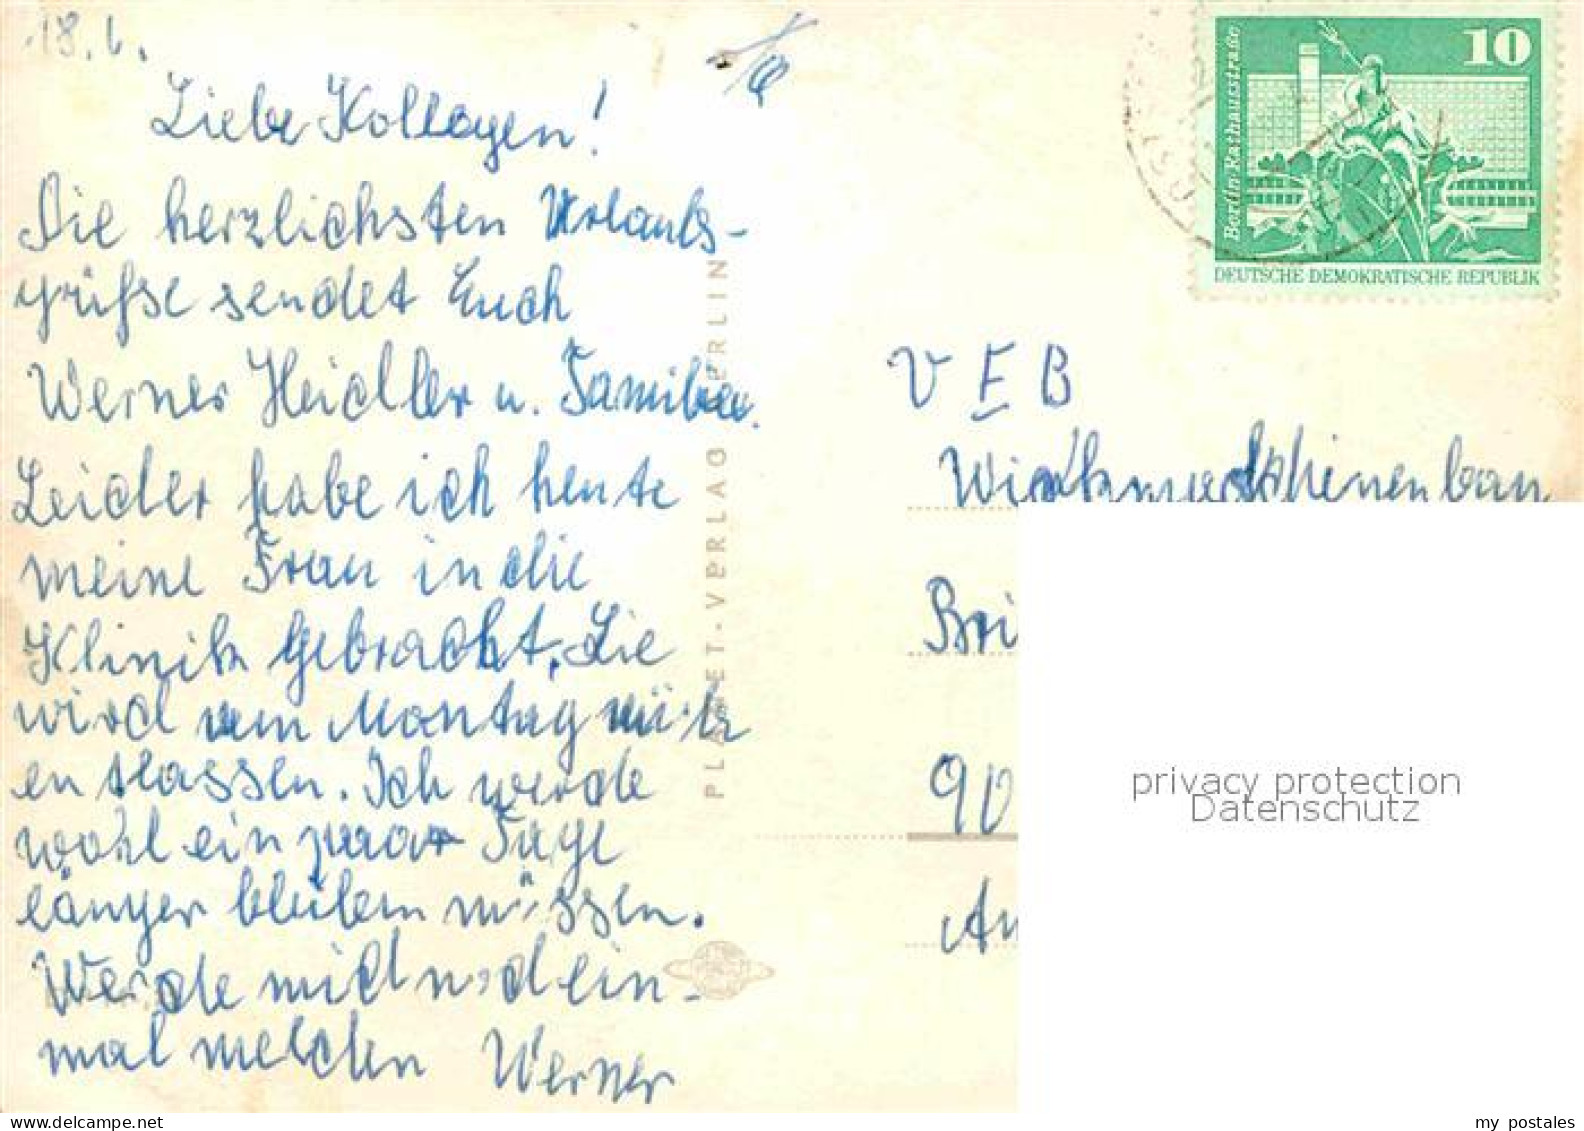 18.6.
Liebe Kollegen!
Die herzlichsten Urlaubs-
grüße sendet Euch
Werner Heidler u. Familie.
Leider habe ich heute
meine Frau in die
Klinik gebracht. Sie
wird am Montag
entlassen. Ich werde
wohl ein paar Tage
länger bleiben müssen.
Werde mich noch ein-
mal melden Werner
PLANET-VERLAG BERLIN
10
Berlin, Rathausstraße
DEUTSCHE DEMOKRATISCHE REPUBLIK
VEB
Wirkmaschinenbau
Bri
90
An
privacy protection
Datenschutz
my postales